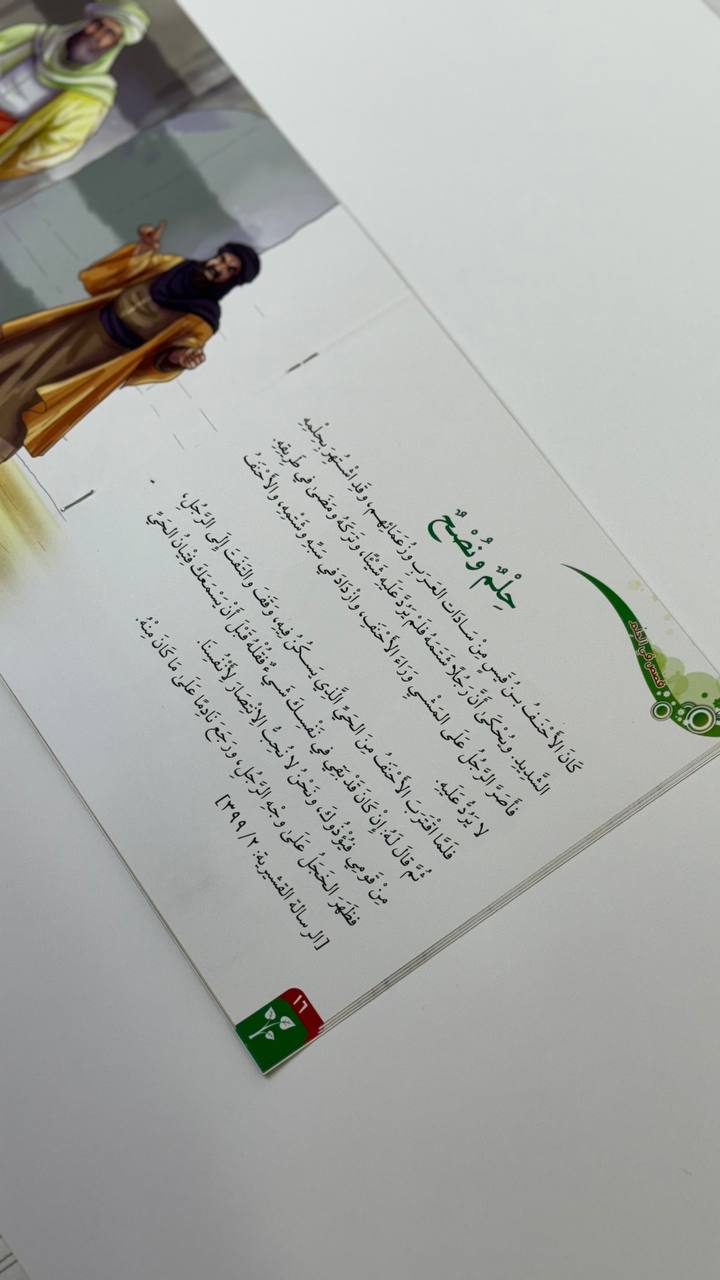 قصص في الحلم
حِلْمٌ وَنُصْحٌ
كَانَ الأَحْنَفُ بنُ قَيسٍ مِنْ سَادَاتِ العَرَبِ وزُعَمَائِهِم، وَقَد اشْتُهِرَ بِحِلْمِهِ
الشَّدِيدِ. ويُحْكَى أَنَّ رَجُلًا شَتَمَهُ فَلَم يَرُدَّ عَلَيهِ شَيْئًا، وتَرَكَهُ ومَضَى في طَرِيقِهِ.
فَأَصَرَّ الرَّجُلُ عَلَى المَشْيِ وَرَاءَ الأَحْنَفِ، وازْدَادَ في سَبِّهِ وشَتْمِهِ، والأَحْنَفُ
لا يَرُدُّ عَلَيهِ.
فَلَمَّا اقْتَرَبَ الأَحْنَفُ مِنَ الحَيِّ الَّذِي يَسكُنُ فِيهِ، وَقَفَ والتَفَتَ إِلَى الرَّجُلِ،
ثُمَّ قَالَ لَهُ: إِنْ كَانَ قَدْ بَقِيَ في نَفْسِكَ شَيءٌ فَقُلْهُ قَبْلَ أَنْ يَسْمَعَكَ فِتْيانُ الحَيِّ
مِنْ قَومِي فَيُؤْذُوكَ، ونَحْنُ لا نُحِبُّ الانْتِصَارَ لأَنْفُسِنَا.
فَظَهَرَ الخَجَلُ عَلَى وَجْهِ الرَّجُلِ، ورَجَعَ نَادِمًا عَلَى مَا كَانَ مِنْهُ.
[الرسالة القشيرية: ٢/ ٣٩٩]
١٦